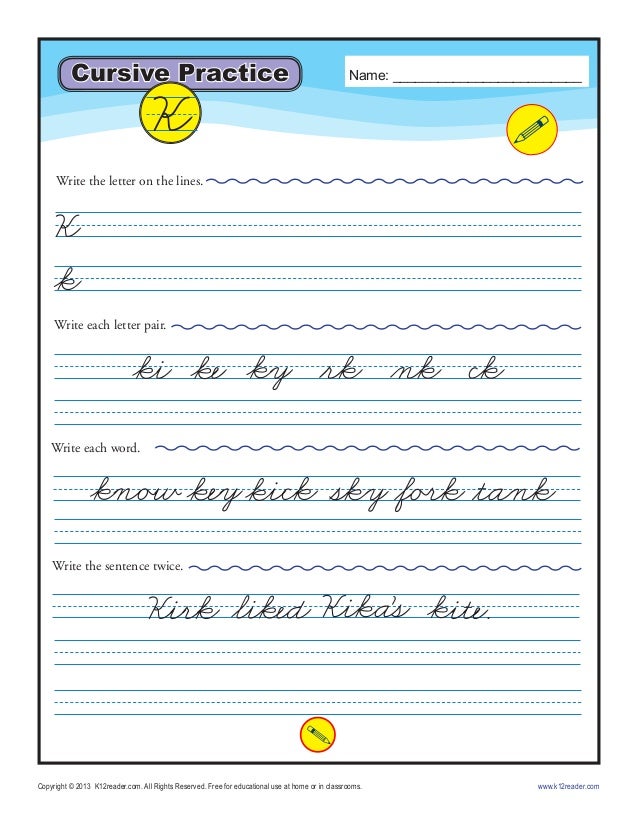 Cursive Practice
Name: ________________________
K
Write the letter on the lines.
K
k
Write each letter pair.
ki ke ky rk nk ck
Write each word.
know key kick sky fork tank
Write the sentence twice.
Kirk liked Kika's kite.
Copyright © 2013 K12reader.com. All Rights Reserved. Free for educational use at home or in classrooms.
www.k12reader.com